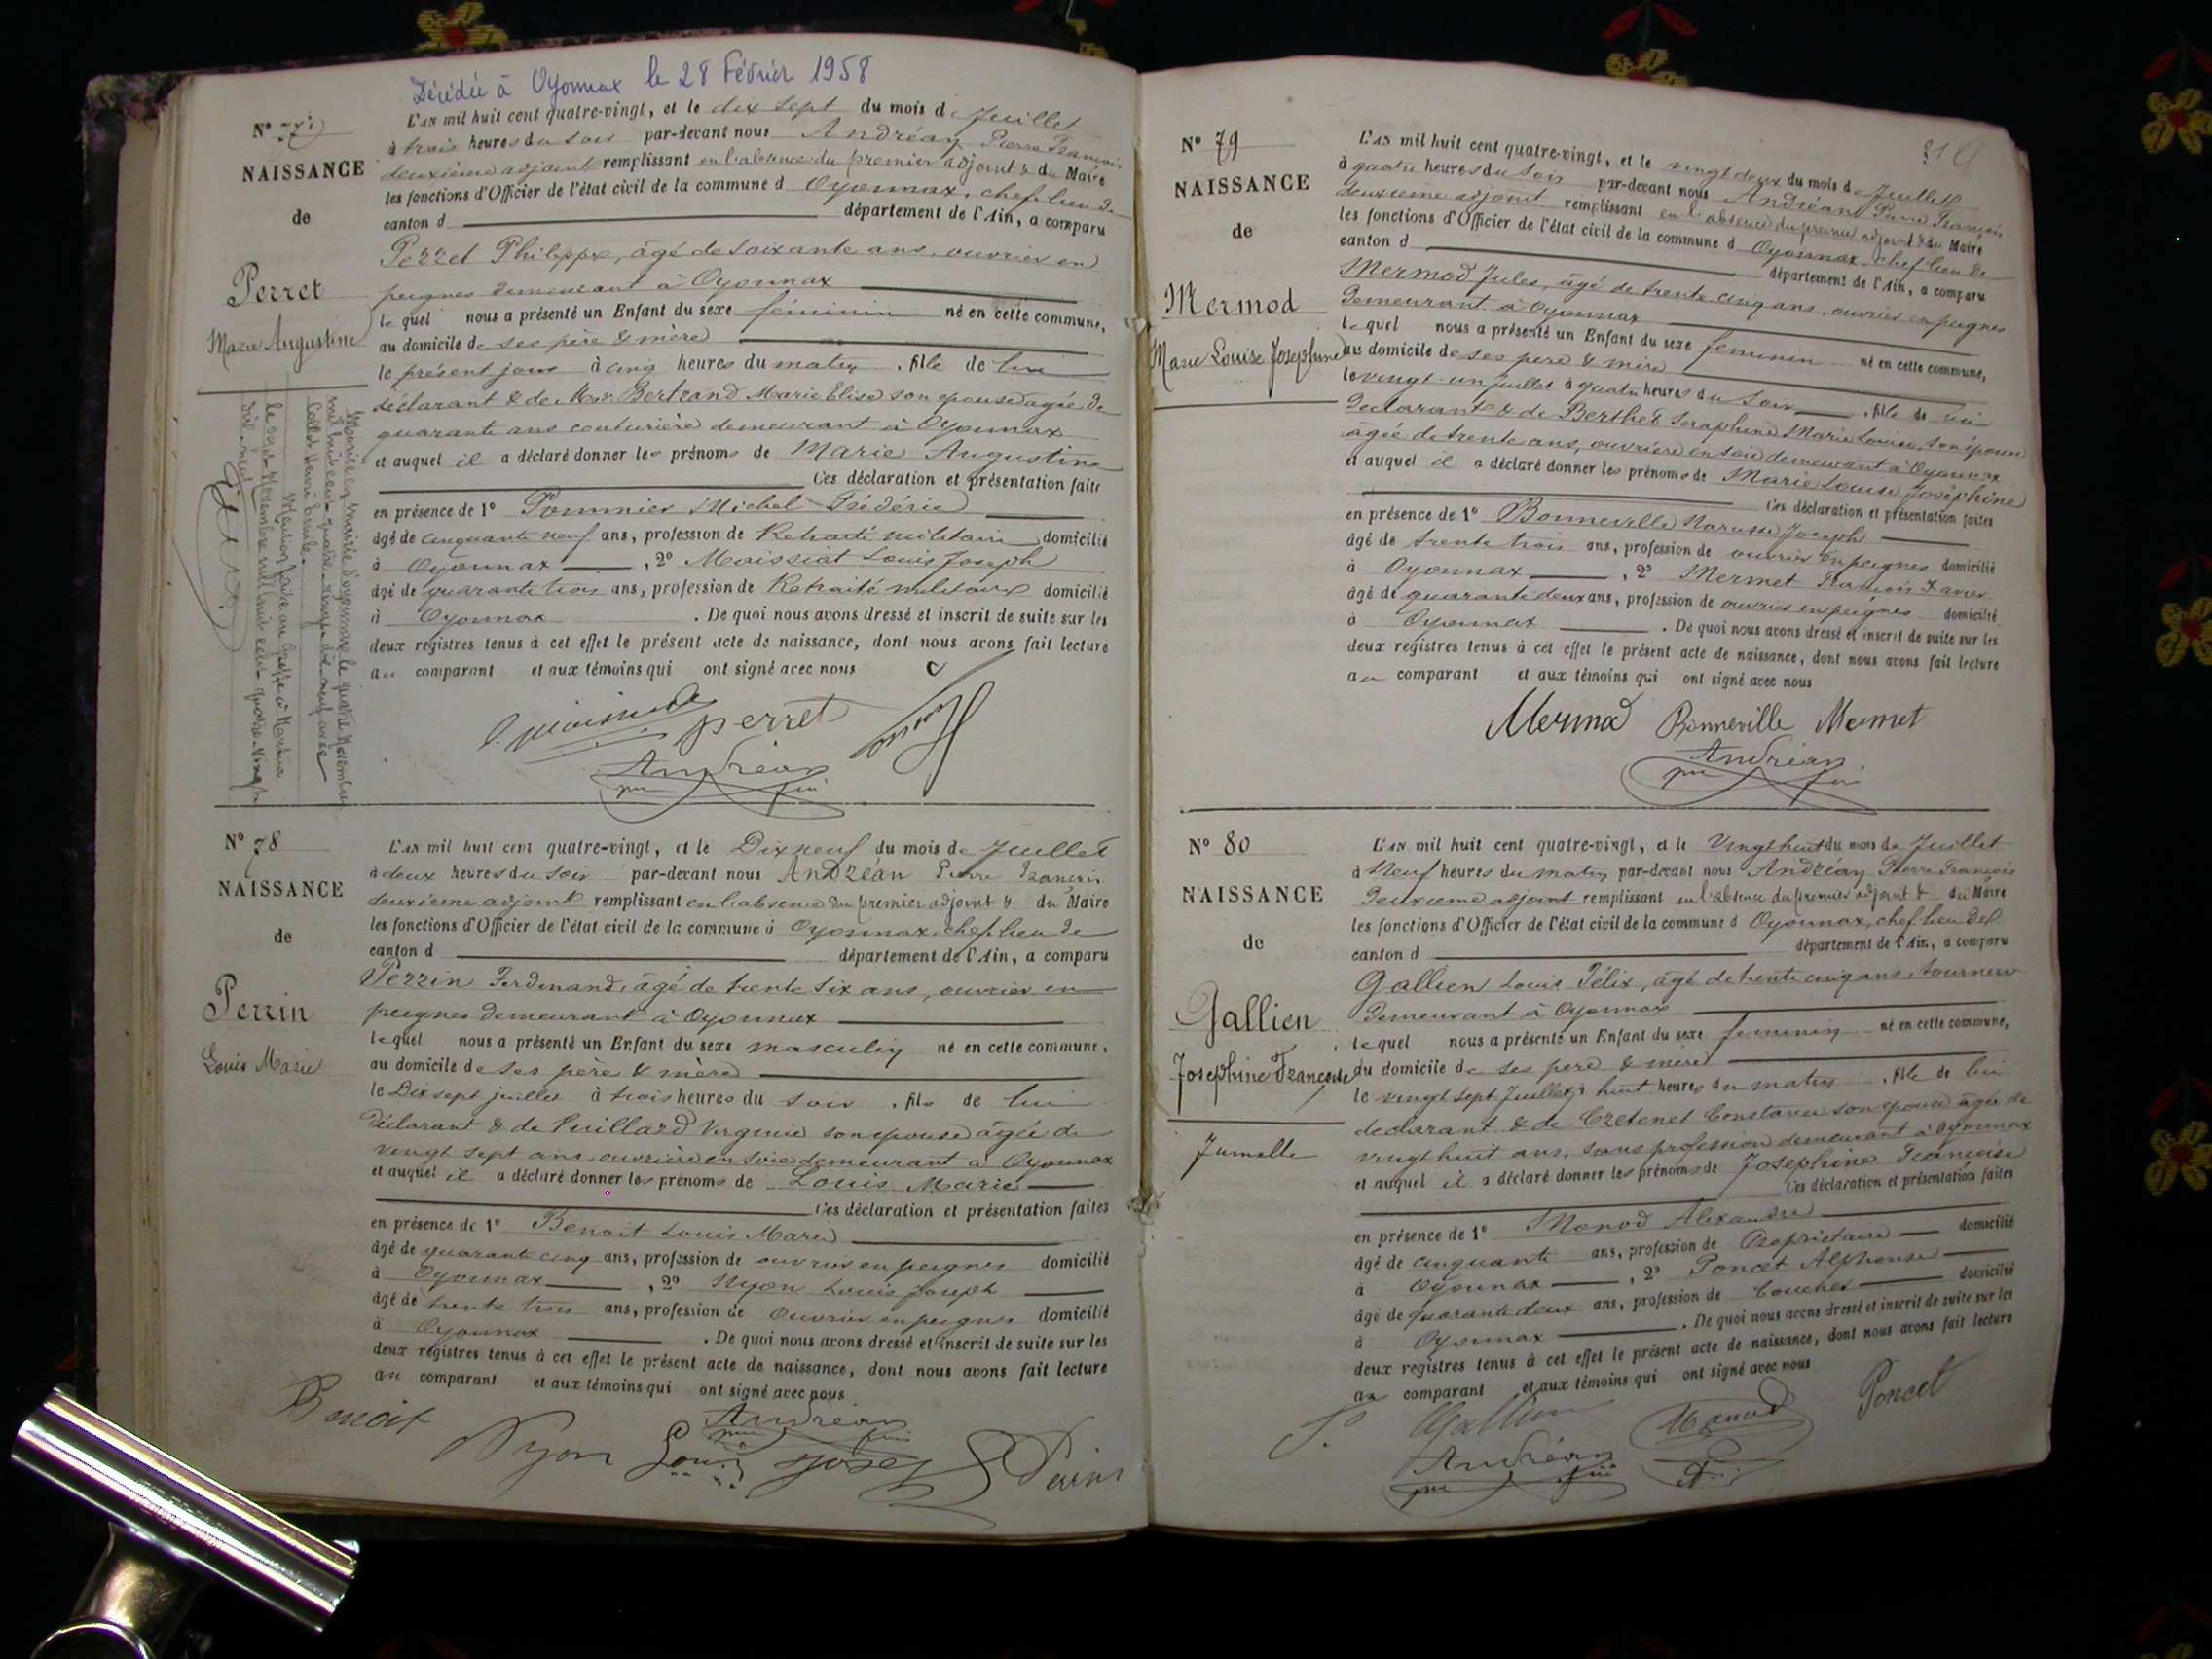 Décédée à Oyonnax le 28 Février 1958
N° 77
NAISSANCE
de
Perret
Marie Augustine
L'AN mil huit cent quatre-vingt, et le dix sept du mois de Juillet
à trois heures du soir par-devant nous Andréan Pierre François
deuxième adjoint remplissant en l'absence du premier adjoint & du Maire
les fonctions d'Officier de l'état civil de la commune d Oyonnax, chef lieu de
canton d département de l'Ain, a comparu
Perret Philippe, âgé de soixante ans, ouvrier en
peignes demeurant à Oyonnax
lequel nous a présenté un Enfant du sexe féminin né en cette commune,
au domicile de ses père & mère
le présent jour à cinq heures du matin, fille de lui
déclarant & de Bertrand Marie Elise son épouse agée de
quarante ans couturière demeurant à Oyonnax
et auquel il a déclaré donner les prénoms de Marie Augustine
Ces déclaration et présentation faite
en présence de 1° Pommier Michel Frédéric
âgé de cinquante neuf ans, profession de Retraité militaire domicilié
à Oyonnax, 2° Moissiat Louis Joseph
âgé de quarante trois ans, profession de Retraité militaire domicilié
à Oyonnax. De quoi nous avons dressé et inscrit de suite sur les
deux registres tenus à cet effet le présent acte de naissance, dont nous avons fait lecture
au comparant et aux témoins qui ont signé avec nous
perret
Andréan
Mariée en Mairie d'Oyonnax le quatre Novembre
mil huit cent quatre-vingt-dix-neuf avec
Collet Henri Emile.
Mention faite au Greffe à Nantua
le sept Novembre mil huit cent quatre-vingt
dix-neuf
N° 78
NAISSANCE
de
Perrin
Louis Marie
L'AN mil huit cent quatre-vingt, et le Dix neuf du mois de Juillet
à deux heures du soir par-devant nous Andréan Pierre François
deuxième adjoint remplissant en l'absence du premier adjoint & du Maire
les fonctions d'Officier de l'état civil de la commune d Oyonnax chef lieu de
canton d département de l'Ain, a comparu
Perrin Ferdinand, âgé de trente six ans, ouvrier en
peignes demeurant à Oyonnax
lequel nous a présenté un Enfant du sexe masculin né en cette commune,
au domicile de ses père & mère
le Dix sept juillet à trois heures du soir, fils de lui
déclarant & de Virginie son épouse âgée de
vingt sept ans ouvrière en soie demeurant à Oyonnax
et auquel il a déclaré donner les prénoms de Louis Marie
Ces déclaration et présentation faites
en présence de 1° Benoit Louis Marie
âgé de quarante cinq ans, profession de ouvrier en peignes domicilié
à Oyonnax, 2° Nyon Louis Joseph
âgé de trente trois ans, profession de Ouvrier en peignes domicilié
à Oyonnax. De quoi nous avons dressé et inscrit de suite sur les
deux registres tenus à cet effet le présent acte de naissance, dont nous avons fait lecture
au comparant et aux témoins qui ont signé avec nous
Benoit Nyon Andréan
N° 79
NAISSANCE
de
Mermod
Marie Louise Joséphine
L'AN mil huit cent quatre-vingt, et le vingt deux du mois de Juillet
à quatre heures du soir par-devant nous Andréan Pierre François
deuxième adjoint remplissant en l'absence du premier adjoint & du Maire
les fonctions d'Officier de l'état civil de la commune d Oyonnax, chef lieu de
canton d département de l'Ain, a comparu
Mermod Jules, âgé de trente cinq ans, ouvrier en peignes
demeurant à Oyonnax
lequel nous a présenté un Enfant du sexe féminin né en cette commune,
au domicile de ses père & mère
le vingt-un juillet à quatre heures du soir, fille de lui
déclarant & de Berthet Seraphine Marie Louise, son épouse
âgée de trente ans, ouvrière en soie demeurant à Oyonnax
et auquel il a déclaré donner les prénoms de Marie Louise Joséphine
Ces déclaration et présentation faites
en présence de 1° Bonneville Narcisse Joseph
âgé de trente trois ans, profession de ouvrier en peignes domicilié
à Oyonnax, 2° Mermet François Xavier
âgé de quarante deux ans, profession de ouvrier en peignes domicilié
à Oyonnax. De quoi nous avons dressé et inscrit de suite sur les
deux registres tenus à cet effet le présent acte de naissance, dont nous avons fait lecture
au comparant et aux témoins qui ont signé avec nous
Mermod Bonneville Mermet
Andréan
N° 80
NAISSANCE
de
Gallien
Josephine Françoise
Jumelle
L'AN mil huit cent quatre-vingt, et le Vingt huit du mois de Juillet
à Neuf heures du matin par-devant nous Andréan Pierre François
Deuxième adjoint remplissant en l'absence du premier adjoint & du Maire
les fonctions d'Officier de l'état civil de la commune d Oyonnax, chef lieu de
canton d département de l'Ain, a comparu
Gallien Louis Félix, âgé de trente cinq ans, tourneur
demeurant à Oyonnax
lequel nous a présenté un Enfant du sexe féminin né en cette commune,
au domicile de ses père & mère
le vingt sept Juillet à huit heures du matin, fille de lui
déclarant & de Cretenet Constance son épouse âgée de
vingt huit ans, sans profession demeurant à Oyonnax
et auquel il a déclaré donner les prénoms de Joséphine Françoise
Ces déclaration et présentation faites
en présence de 1° Monod Alexandre
âgé de cinquante ans, profession de Propriétaire domicilié
à Oyonnax, 2° Poncet Alphonse
âgé de quarante deux ans, profession de boucher domicilié
à Oyonnax. De quoi nous avons dressé et inscrit de suite sur les
deux registres tenus à cet effet le présent acte de naissance, dont nous avons fait lecture
au comparant et aux témoins qui ont signé avec nous
Gallien Monod Poncet
Andréan